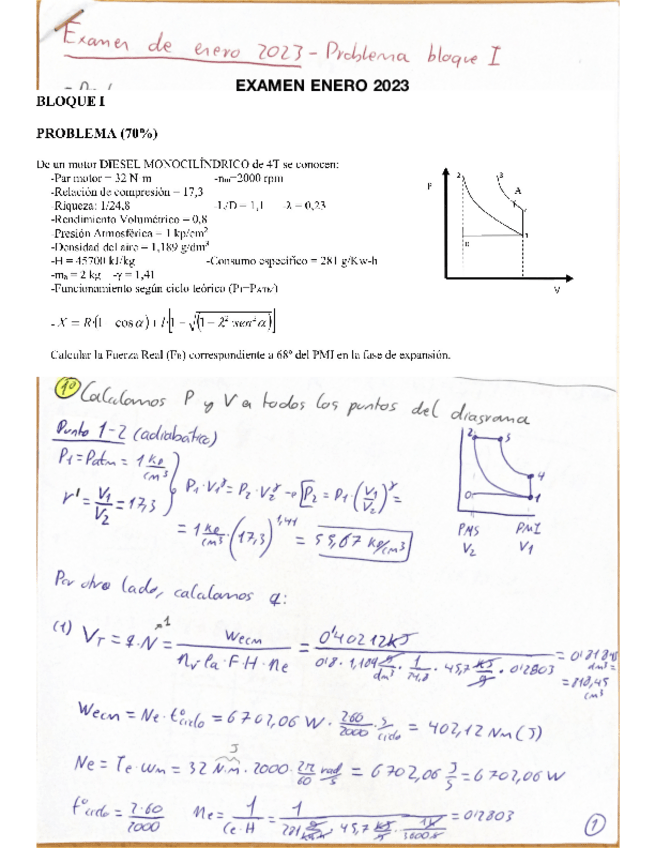 Examen de enero 2023 - Problema bloque I
EXAMEN ENERO 2023
BLOQUE I
PROBLEMA (70%)
De un motor DIESEL MONOCILÍNDRICO de 4T se conocen:
-Par motor = 32 N·m -nm=2000 rpm
-Relación de compresión = 17,3
-Riqueza: 1/24,8 -L/D = 1,1 -λ = 0,23
-Rendimiento Volumétrico = 0,8
-Presión Atmosférica = 1 kp/cm²
-Densidad del aire = 1,189 g/dm³
-H = 45700 kJ/kg -Consumo específico = 281 g/Kw-h
-ma = 2 kg -γ = 1,41
-Funcionamiento según ciclo teórico (P1=PATM)
- X = R·(1 cos α) + l·[1 − √(1 − λ² sen² α)]
Calcular la Fuerza Real (FR) correspondiente a 68º del PMI en la fase de expansión.
P
2
3
A
0
1
V
1º Calculamos P y V a todos los puntos del diagrama
Punto 1-2 (adiabática)
P1 = Patm = 1 kp/cm³
r' = V1/V2 = 17,3
P1·V1^γ = P2·V2^γ → P2 = P1·(V1/V2)^γ =
= 1 kp/cm³ · (17,3)^1,41 = 55,67 kp/cm³
2 3
4
0 1
PMS PMI
V2 V1
Por otro lado, calculamos q:
(1) VT = q·N = Wecm / (nv·ρa·F·H·ne) = 0'40212 kJ / (0'8 · 1,189 g/dm³ · 1/24,8 · 45,7 kJ/g · 0'2803) = 0'81845 dm³ =
= 818,45 cm³
Wecm = Ne·tºciclo = 6702,06 W · 2·60/2000 s/ciclo = 402,12 Nm (J)
Ne = Te·ωm = 32 N·m · 2000 · 2π/60 rad/s = 6702,06 J/s = 6702,06 W
tºciclo = 2·60/2000 ne = 1/(Ce·H) = 1/(281 g/kW·h · 45,7 kJ/g · 1h/3600s) = 0'2803
1